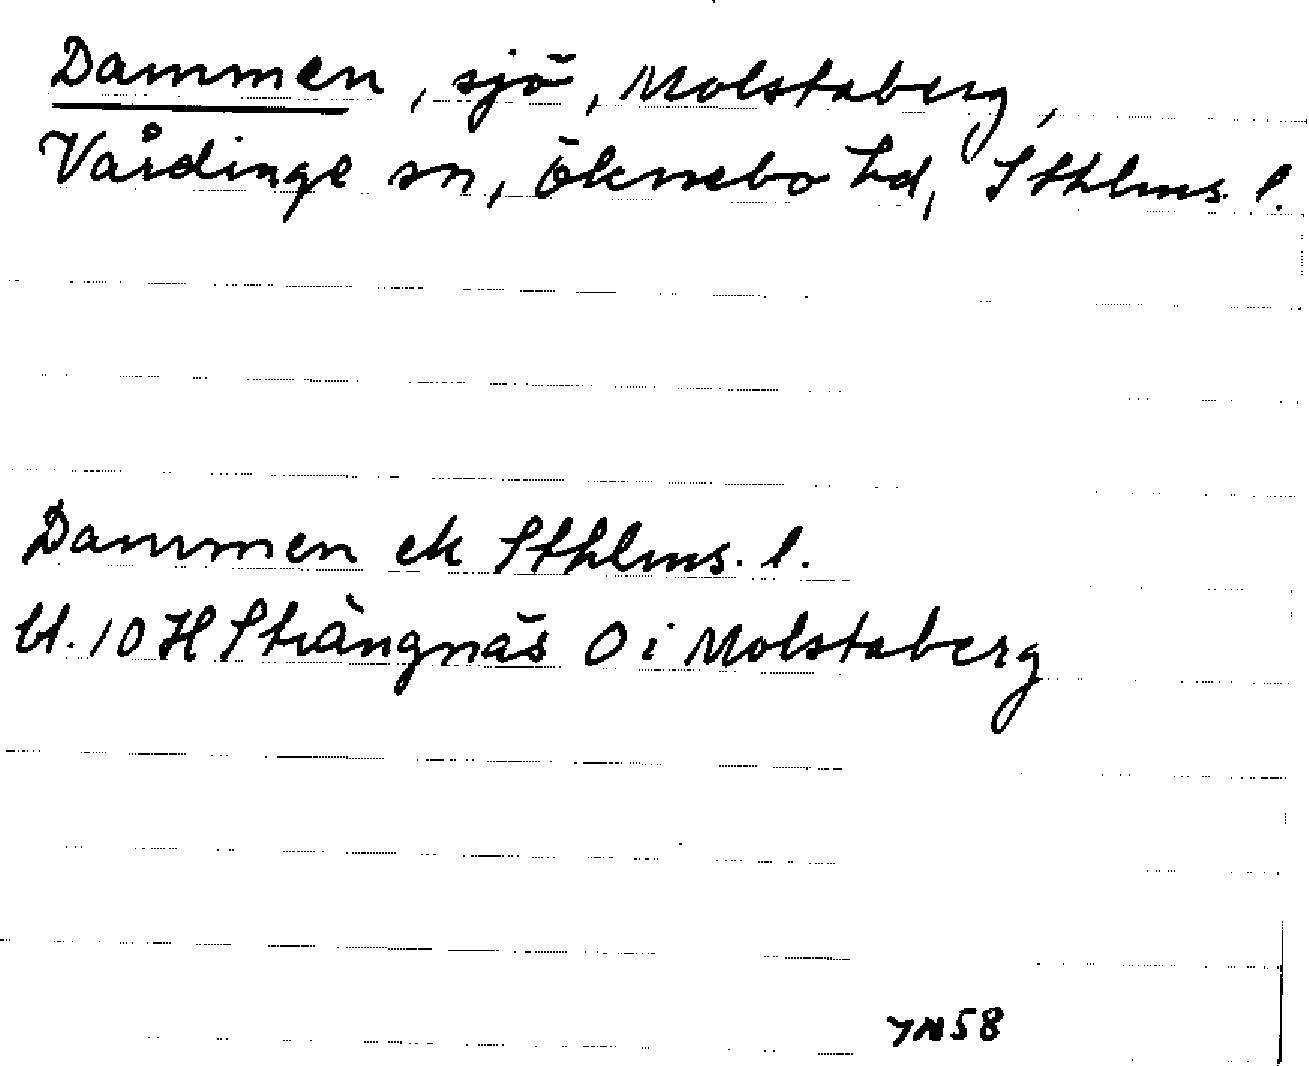 Dammen, sjö, Molstaberg,
Vårdinge sn, Öknebo hd, Sthlms. l.
Dammen ek Sthlms. l.
bl. 10 H Strängnäs O i Molstaberg
58